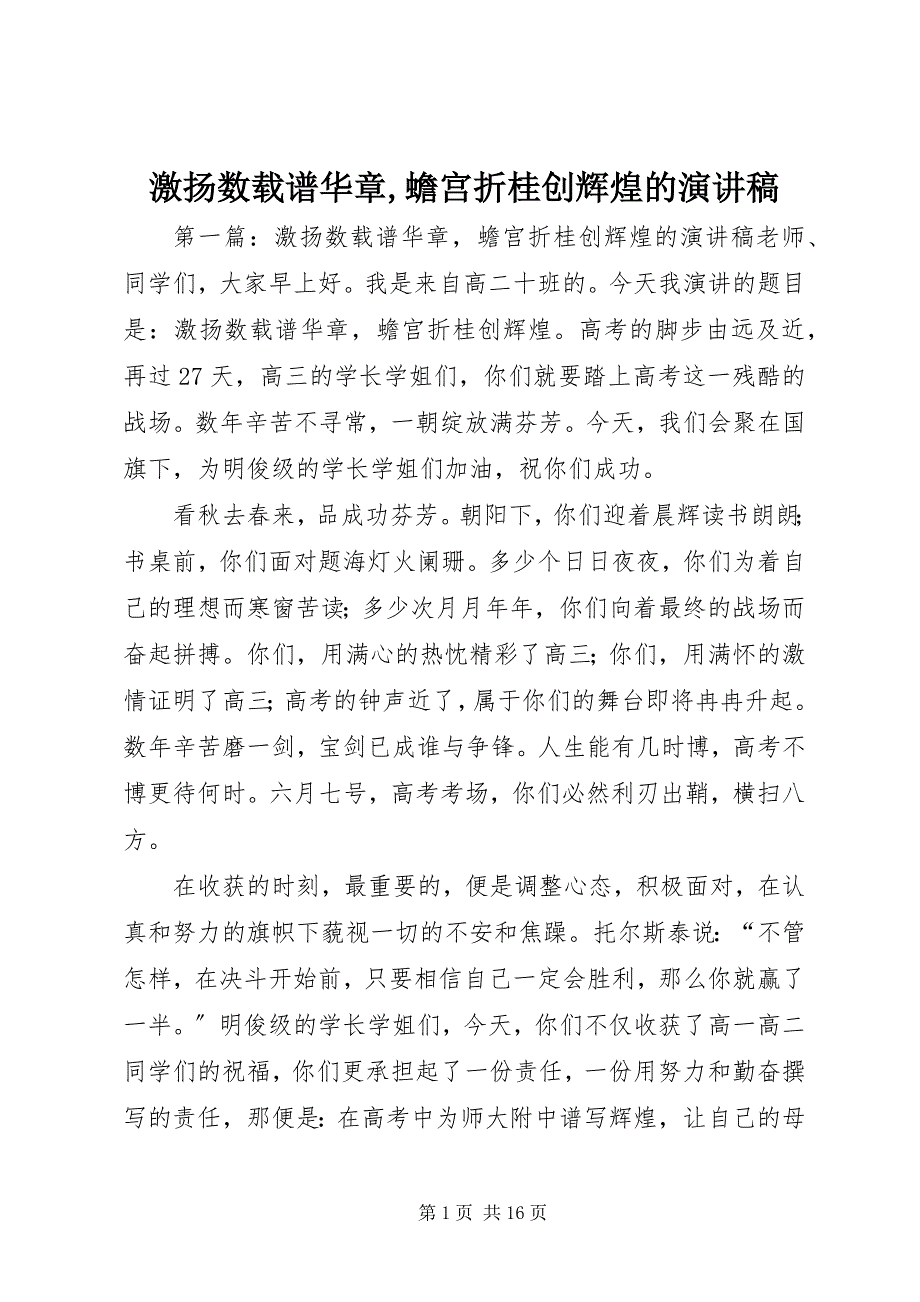 激扬数载谱华章,蟾宫折桂创辉煌的演讲稿
第一篇：激扬数载谱华章，蟾宫折桂创辉煌的演讲稿老师、
同学们，大家早上好。我是来自高二十班的。今天我演讲的题目
是：激扬数载谱华章，蟾宫折桂创辉煌。高考的脚步由远及近，
再过 27 天，高三的学长学姐们，你们就要踏上高考这一残酷的
战场。数年辛苦不寻常，一朝绽放满芬芳。今天，我们会聚在国
旗下，为明俊级的学长学姐们加油，祝你们成功。
看秋去春来，品成功芬芳。朝阳下，你们迎着晨辉读书朗朗；
书桌前，你们面对题海灯火阑珊。多少个日日夜夜，你们为着自
己的理想而寒窗苦读；多少次月月年年，你们向着最终的战场而
奋起拼搏。你们，用满心的热忱精彩了高三；你们，用满怀的激
情证明了高三；高考的钟声近了，属于你们的舞台即将冉冉升起。
数年辛苦磨一剑，宝剑已成谁与争锋。人生能有几时博，高考不
博更待何时。六月七号，高考考场，你们必然利刃出鞘，横扫八
方。
在收获的时刻，最重要的，便是调整心态，积极面对，在认
真和努力的旗帜下藐视一切的不安和焦躁。托尔斯泰说：“不管
怎样，在决斗开始前，只要相信自己一定会胜利，那么你就赢了
一半。〞明俊级的学长学姐们，今天，你们不仅收获了高一高二
同学们的祝福，你们更承担起了一份责任，一份用努力和勤奋撰
写的责任，那便是：在高考中为师大附中谱写辉煌，让自己的母
第 1 页 共 16 页